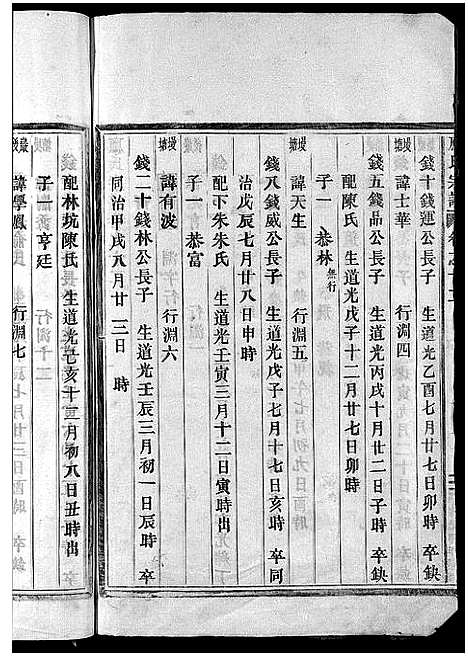 氏宗譜
錢十錢建公長子　生道光乙酉七月廿七日卯時　卒缺
諱士華　行淵四
錢五錢品公長子　生道光丙戌十月廿二日子時　卒缺
配陳氏　生道光戊子十二月廿七日卯時
子一　恭林 無行
諱天生　行淵五
錢八錢威公長子　生道光戊子七月十七日亥時　卒同
治戊辰七月廿八日申時
配下朱朱氏　生道光壬寅三月十二日寅時出
子一　恭富
諱有波　行淵六
錢二十錢林公長子　生道光壬辰三月初一日辰時　卒
同治甲戌八月廿三日　時
配林坑陳氏　生道光己亥十二月初八日丑時出
子一　亨廷
諱學鳳　行淵七